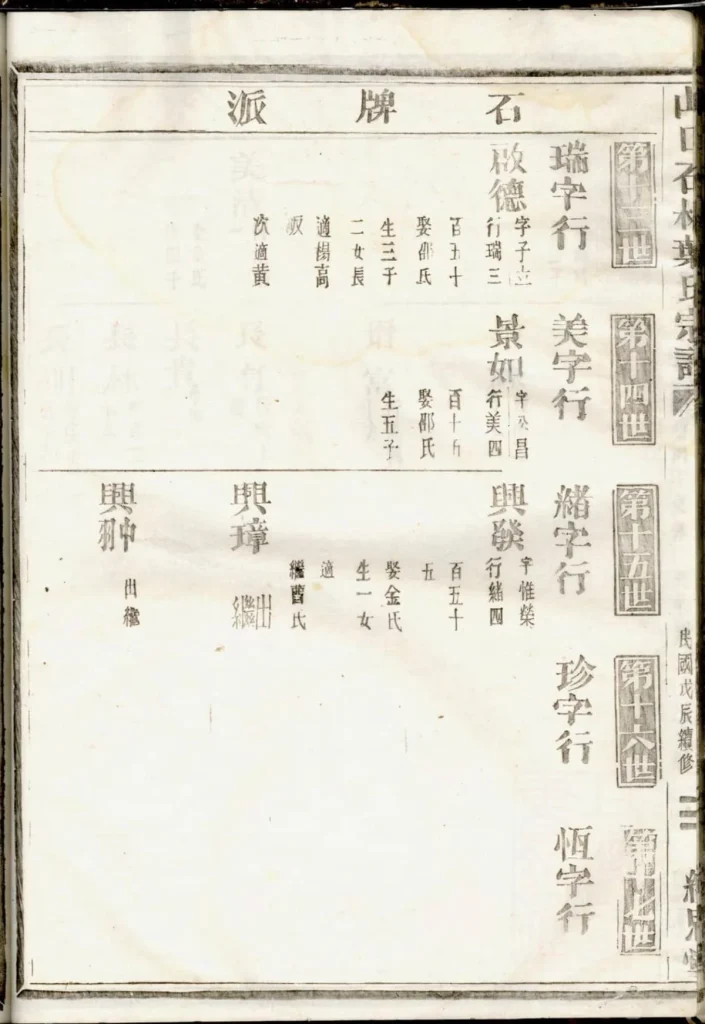 石牌派
第十三世
第十四世
第十五世
第十六世
第十七世
瑞字行
美字行
緒字行
珍字行
恆字行
啟德
字子立
行瑞三
百五十
娶邵氏
生三子
二女長
適楊高
坂
次適黃
景如
字公昌
行美四
百十九
娶邵氏
生五子
興發
字惟榮
行緒四
百五十
五
娶金氏
生一女
適
繼曹氏
興璋
出繼
興翀
出繼
石林葉氏宗譜
民國戊辰續修